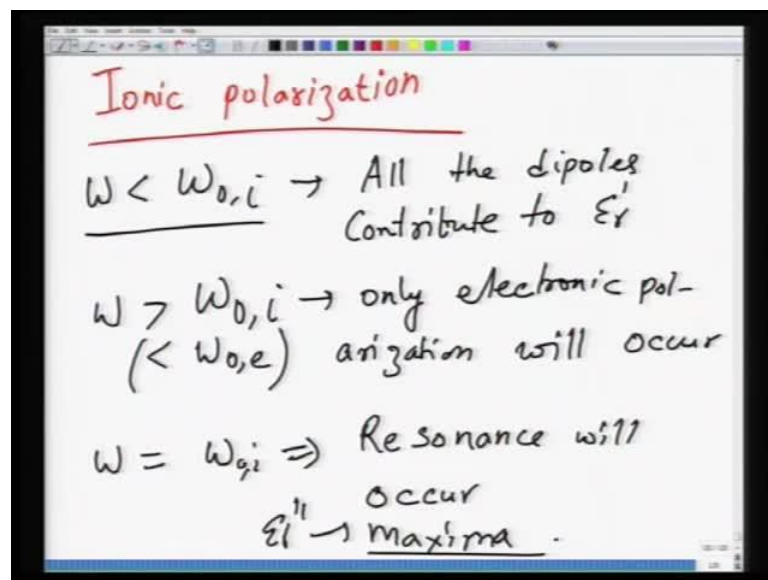 Ionic polarization
ω < ω₀,i → All the dipoles
Contribute to εr'
ω > ω₀,i → only electronic pol-
(< ω₀,e) arization will occur
ω = ω₀,i ⇒ Resonance will
occur
εr'' → maxima.